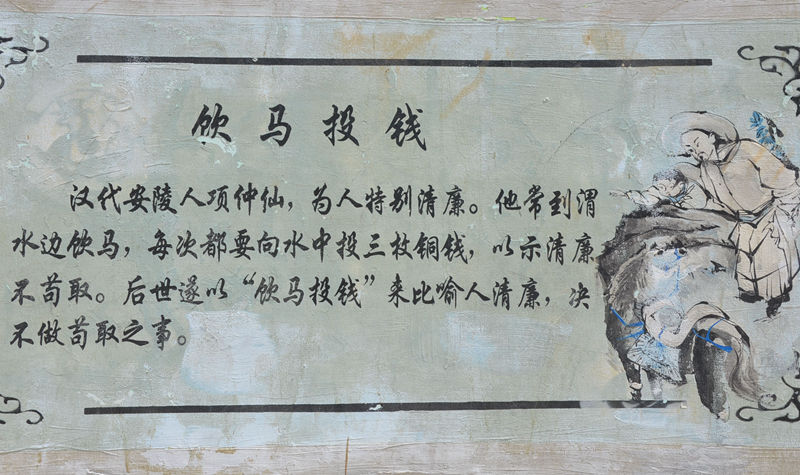 饮马投钱
汉代安陵人项仲仙，为人特别清廉。他常到渭
水边饮马，每次都要向水中投三枚铜钱，以示清廉
不苟取。后世遂以“饮马投钱”来比喻人清廉，决
不做苟取之事。